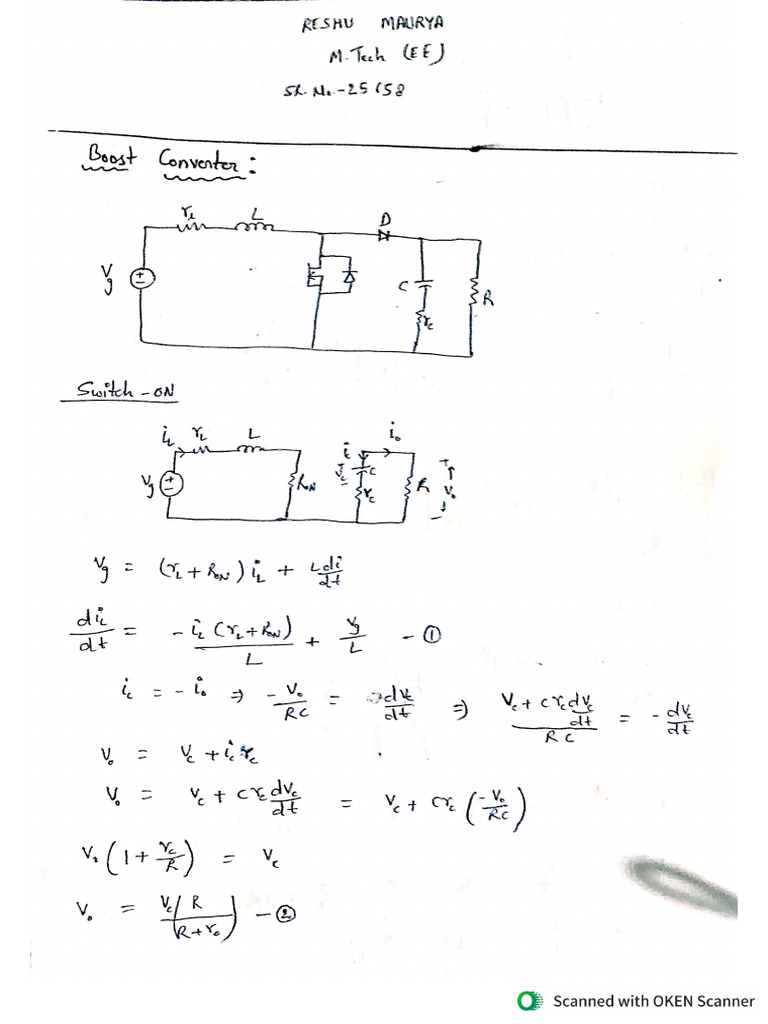 RESHU MAURYA
M.Tech (EE)
SR. No. -25658
Boost Converter:
r_L L D
V_g C R
r_c
Switch - ON
i_L r_L L i_c i_0
V_g R_ON V_c C r_c R + V_0 -
V_g = (r_L + R_ON) i_L + L di/dt
di_L/dt = -i_L (r_L + R_ON)/L + V_g/L - ①
i_c = - i_0 ⇒ - V_0/RC = dV_c/dt ⇒ (V_c + C r_c dV_c/dt)/RC = - dV_c/dt
V_0 = V_c + i_c r_c
V_0 = V_c + C r_c dV_c/dt = V_c + C r_c (-V_0/RC)
V_0 (1 + r_c/R) = V_c
V_0 = V_c (R/(R + r_c)) - ②
Scanned with OKEN Scanner